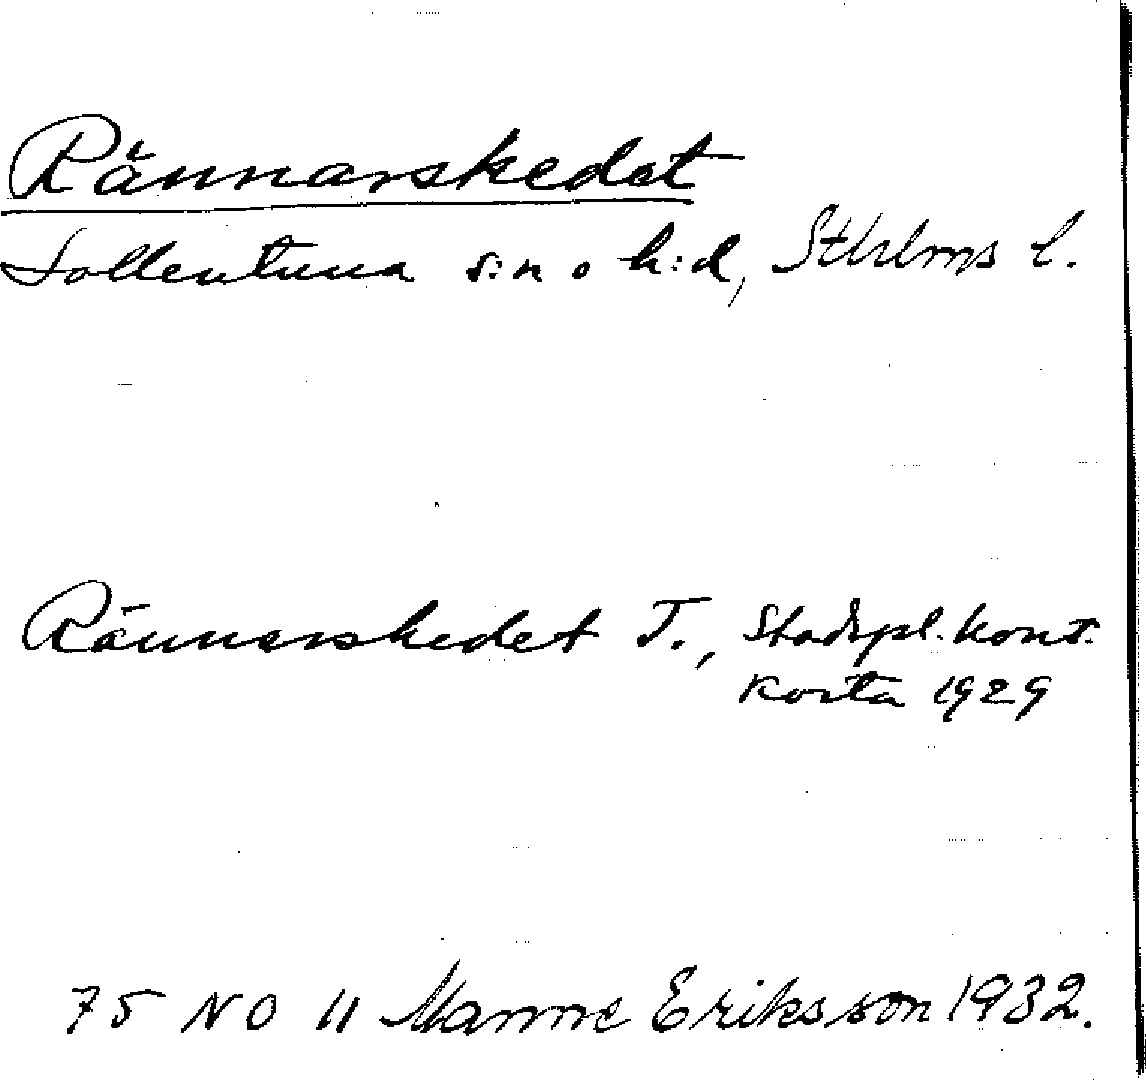 Rännarskedet
Sollentuna s:n o h:d, Sthlms l.
Rännarskedet T., Stadspl. kont.
karta 1929
75 NO 11 Manne Eriksson 1932.